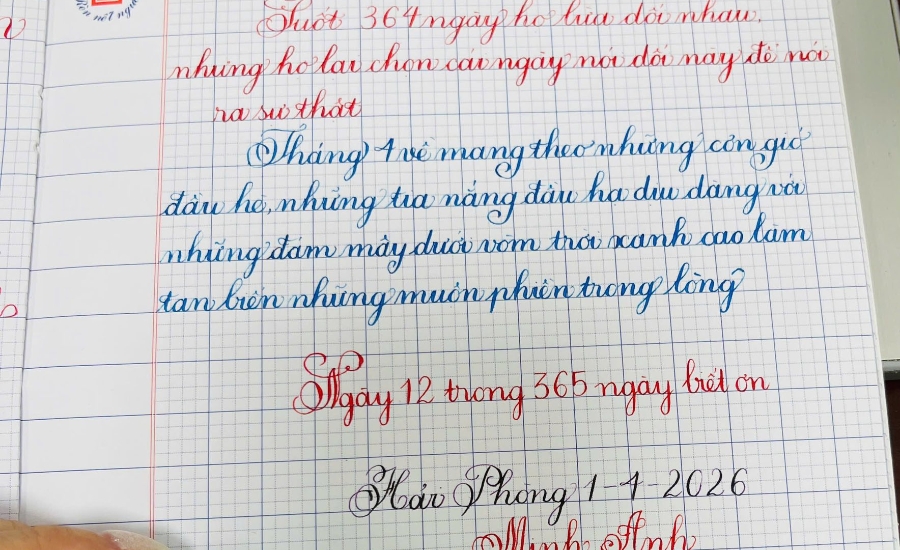 nét ng
Suốt 364 ngày họ lừa dối nhau,
nhưng họ lại chọn cái ngày nói dối này để nói
ra sự thật
Tháng 4 về mang theo những cơn gió
đầu hè, những tia nắng đầu hạ dịu dàng với
những đám mây dưới vòm trời xanh cao làm
tan biến những muộn phiền trong lòng
Ngày 12 trong 365 ngày biết ơn
Hải Phòng 1-4-2026
Minh Anh